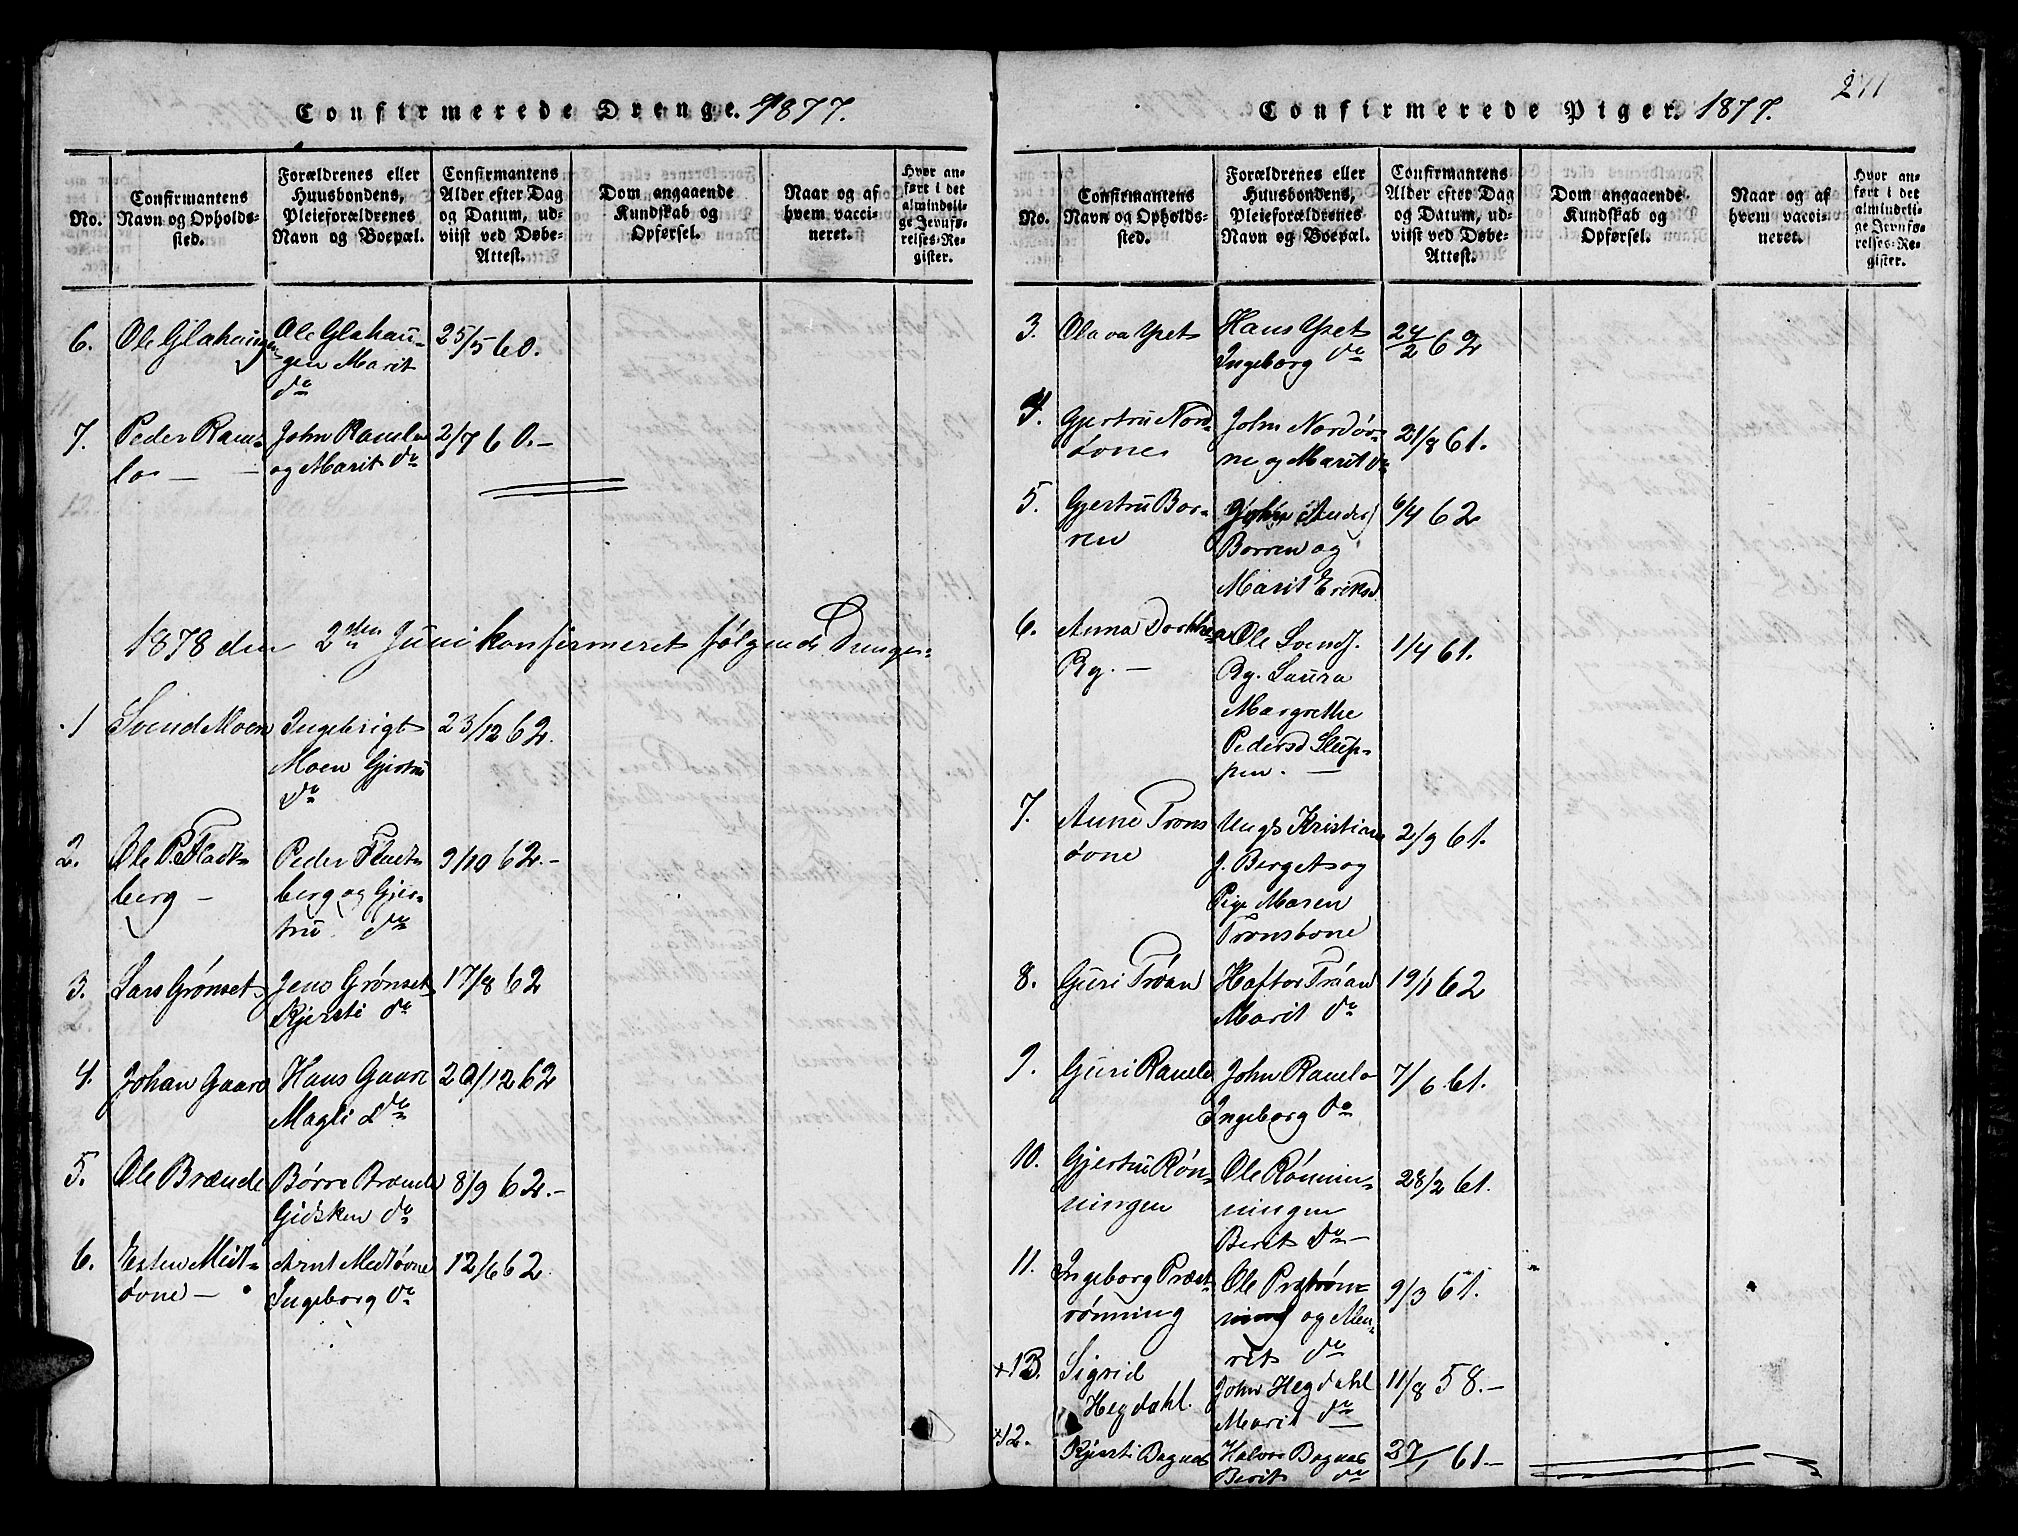 Confirmerede Drenge. 1877.
No.
Confirmantens
Navn og Opholds-
sted.
Forældrenes eller
Huusbondens,
Pleieforældrenes
Navn og Boepæl.
Confirmantens
Alder efter Dag
og Datum, ud-
viist ved Døbe-
Attest.
Dom angaaende
Kundskab og
Opførsel.
Naar og af
hvem vacci-
neret.
Hvor an-
ført i det
almindeli-
ge Jevnfø-
relses-Re-
gister.
6.
Ole Glahaugen
Ole Glahau-
gen Marit
do
25/5 60.
7.
Peder Ram-
lo —
John Ramlo
og Marit do
2/7 60.-
1878 den 2den Juni konfirmeret følgende Drenge-
1
Svend Moen
Ingebrigt
Moen Gjertru
do
23/12 62.
2.
Ole P. Fladt-
berg —
Peder Fladt-
berg og Gjer-
tru do
9/10 62.-
3.
Lars Grønset
Jens Grønset
Kjersti do
17/8 62
4.
Johan Gaare
Hans Gaare
Magli do
20/12 62
5.
Ole Brænde
Børre Brænde
Gidsken do
8/9 62.-
6.
Esten Midt-
øvne —
Arnt Midtøvne
Ingeborg do
12/6 62
271
Confirmerede Piger. 1877.
No.
Confirmantens
Navn og Opholds-
sted.
Forældrenes eller
Huusbondens,
Pleieforældrenes
Navn og Boepæl.
Confirmantens
Alder efter Dag
og Datum, ud-
viist ved Døbe-
Attest.
Dom angaaende
Kundskab og
Opførsel.
Naar og af
hvem vacci-
neret.
Hvor an-
ført i det
almindeli-
ge Jevnfø-
relses-Re-
gister.
3.
Olava Yset
Hans Yset
Ingeborg do
24/2 62
4.
Gjertru Nord-
øvne
John Nordøv-
ne og Marit do
21/8 61.
5.
Gjertru Bor-
ren
John Anders
Borren og
Marit Eriksd
6/4 62
6.
Anna Dorthea
Rg. —
Ole Svends.
Rg. Laura
Margrethe
Pedersd Slup-
pen. —
1/4 61.
7.
Anne Trons
øvne
Ungk Kristian
J. Berget og
Pige Maren
Tronsøvne
2/9 61.
8.
Guri Trøan
Haftor Trøan
Marit do
19/1 62
9.
Guri Ramlo
John Ramlo
Ingeborg do
7/6 61.
10.
Gjertru Røn-
ningen
Ole Rønnin-
ningen
Berit do —
28/2 61.
11.
Ingeborg Præst-
rønning
Ole Prstrøn-
ning og Ma-
rit do
9/3 61.
+13.
Sigrid
Hegdahl.
John Hegdahl
Marit do
11/8 58.-
+12.
Kjersti Bognes
Halvor Bognes
Berit do
27/1 61-